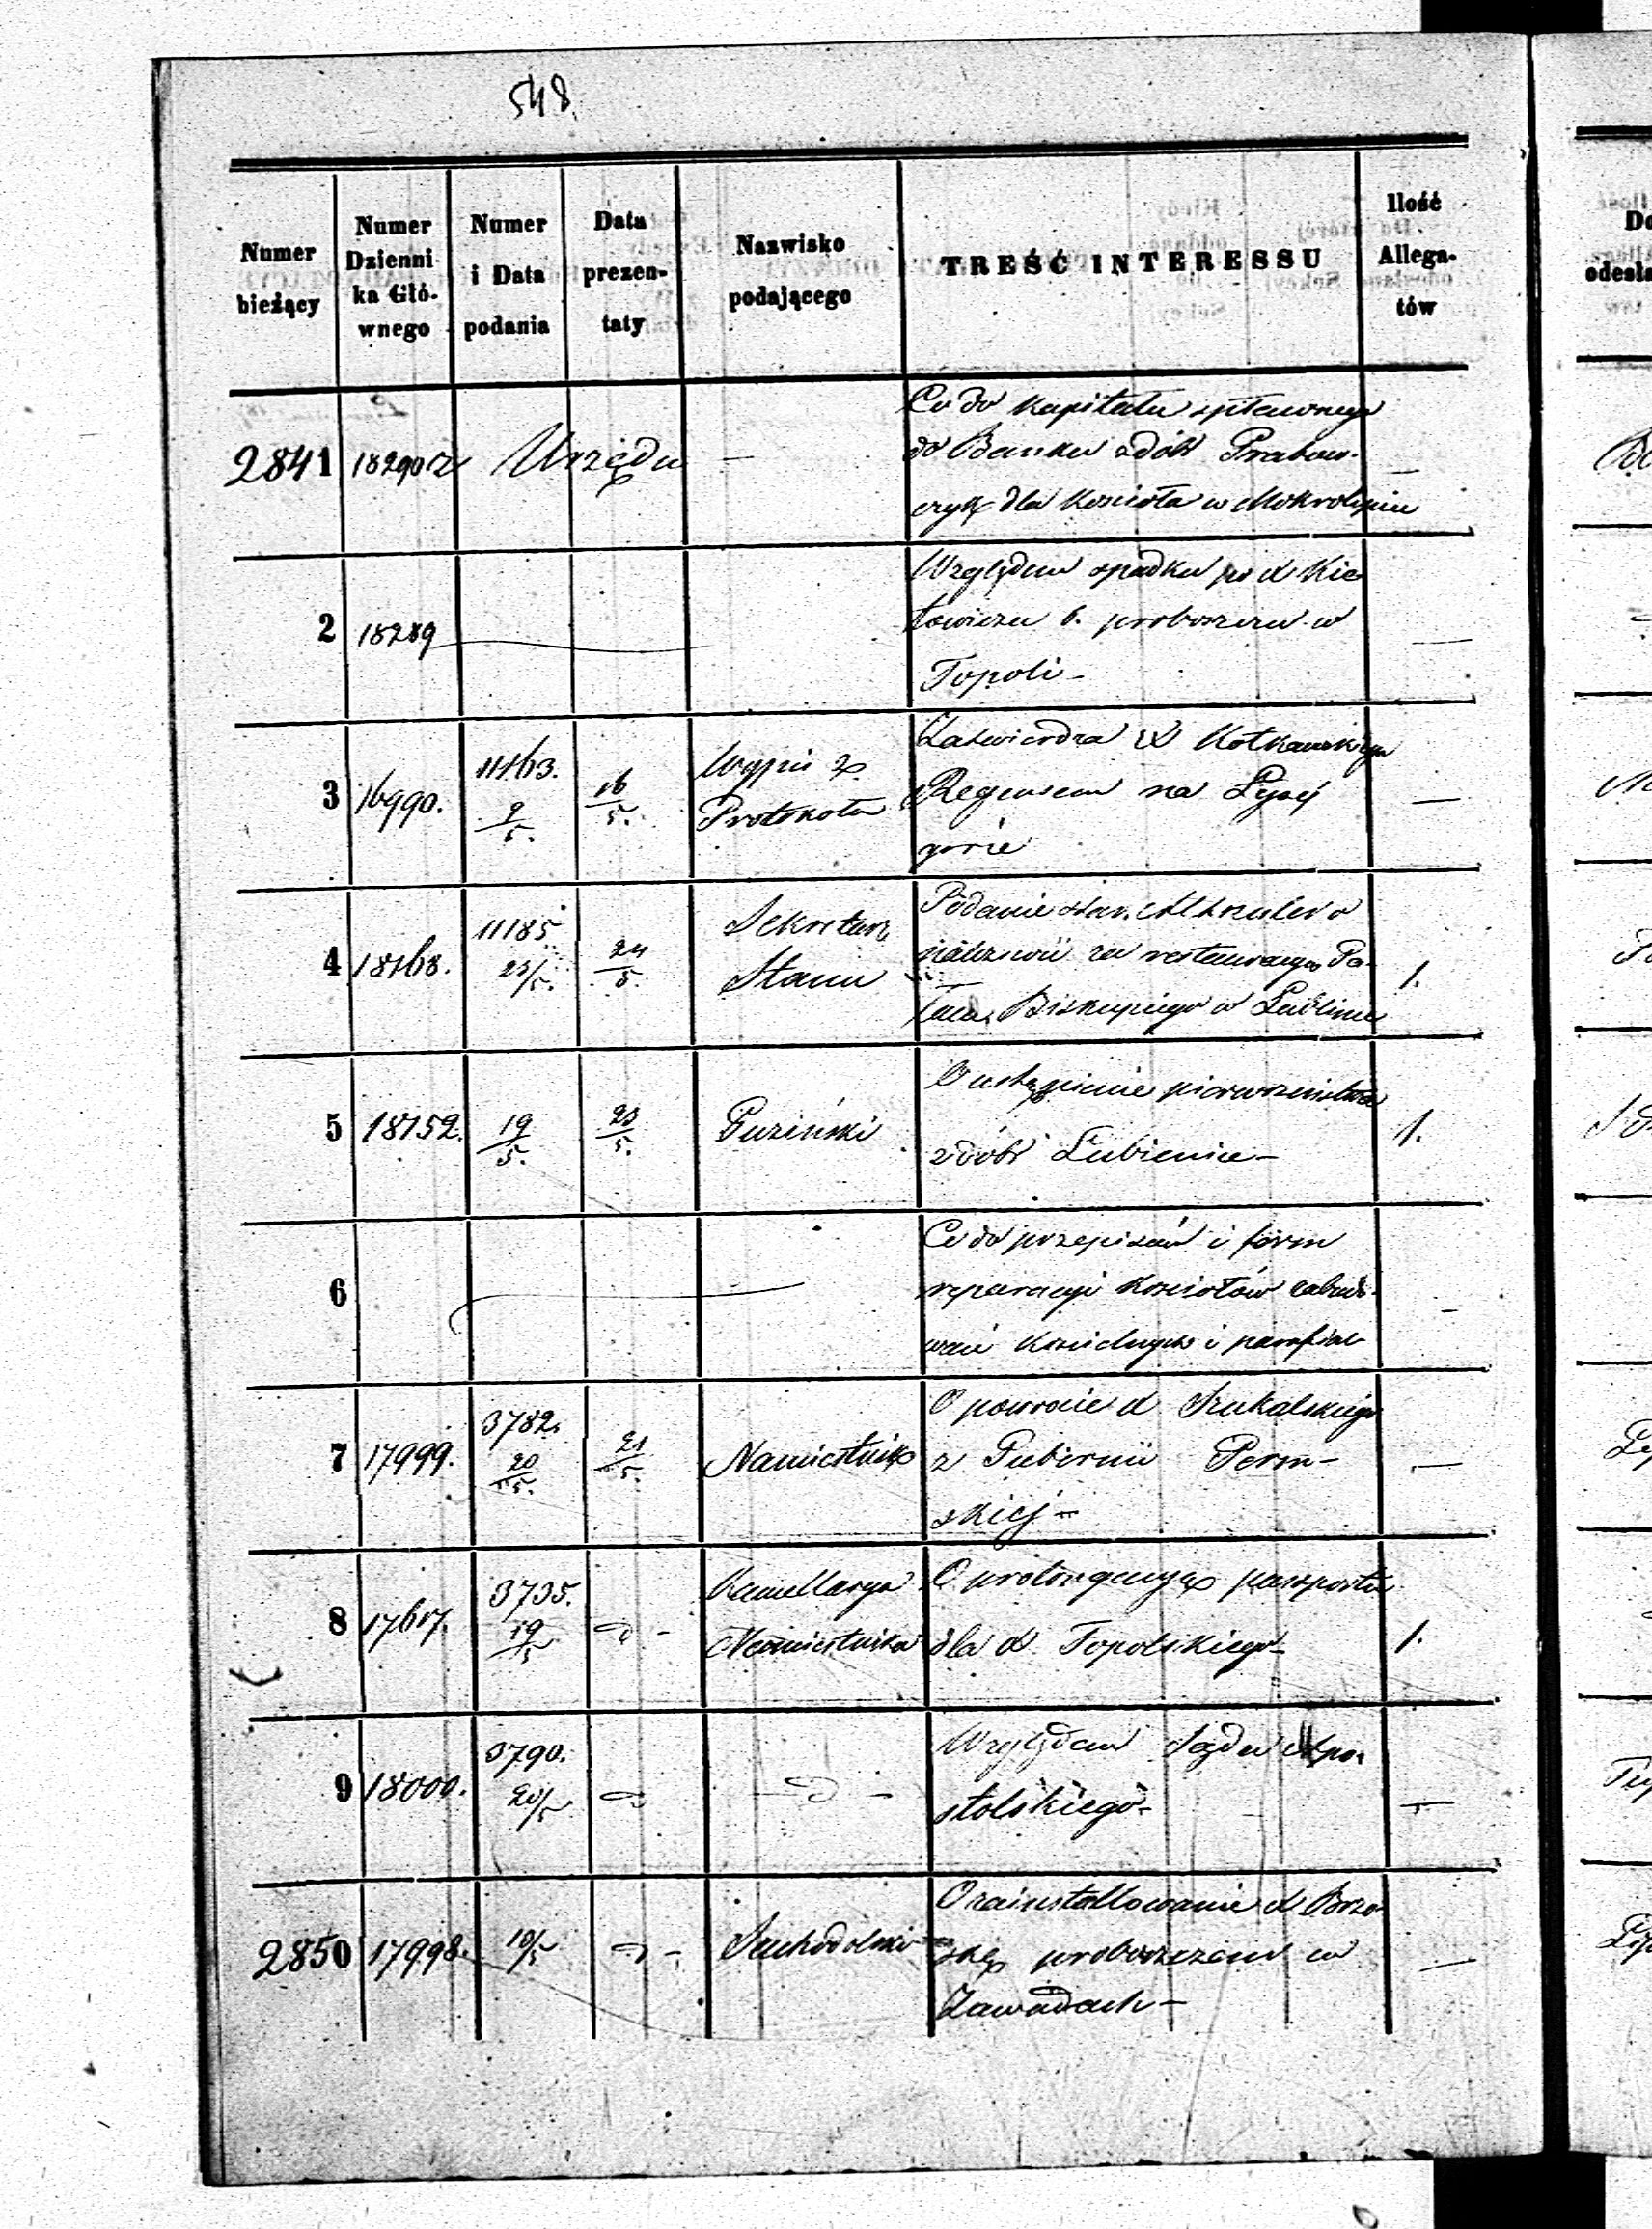 548.
Numer bieżący
Numer Dzienni-ka Głó-wnego
Numer i Data podania
Data prezen-taty
Nazwisko podającego
TREŚĆ INTERESSU
Ilość Allega-tów
2841 18290 z Urzędu —
Co do kapitału spławnego
do Banku z dóbr
dla Kościoła w Mokrolipiu
—
2 18289
Względem spadku po X
b. proboszczu w
Topoli —
—
3 16990. 11163. 9/5. 16/5.
Wypis z
Protokołu
Zatwierdza X Kotkowskiego
Regensem na Łysej
górze
—
4 18168. 11185 23/5. 24/5.
Sekretarz
Stanu
Podanie star. o
za restauracyę Pa-
łacu Biskupiego w Lublinie
1.
5 18152. 19/5. 23/5.
O ustąpienie pierwszeństwa
z dóbr Łubienica —
1.
6
Co do przepisów i form
reparacyi kościołów zabudo-
wań kościelnych i parafial
-
7 17999. 3782. 20/5. 21/5.
Namiestnik
O powrocie X Szukalskiego
z Gubernii Perm-
skiej —
—
8 17617. 3735. 19/5 -
Kancellarya
Namiestnika
O prolongacyę paszportu
dla X Topolskiego —
1.
9 18000. 3790. 20/5
Względem Sądu Apo-
stolskiego —
—
2850 17998. 10/5 -
Suchodolski
O zainstallowanie X Brzo-
skę proboszczem w
Zawadach —
—